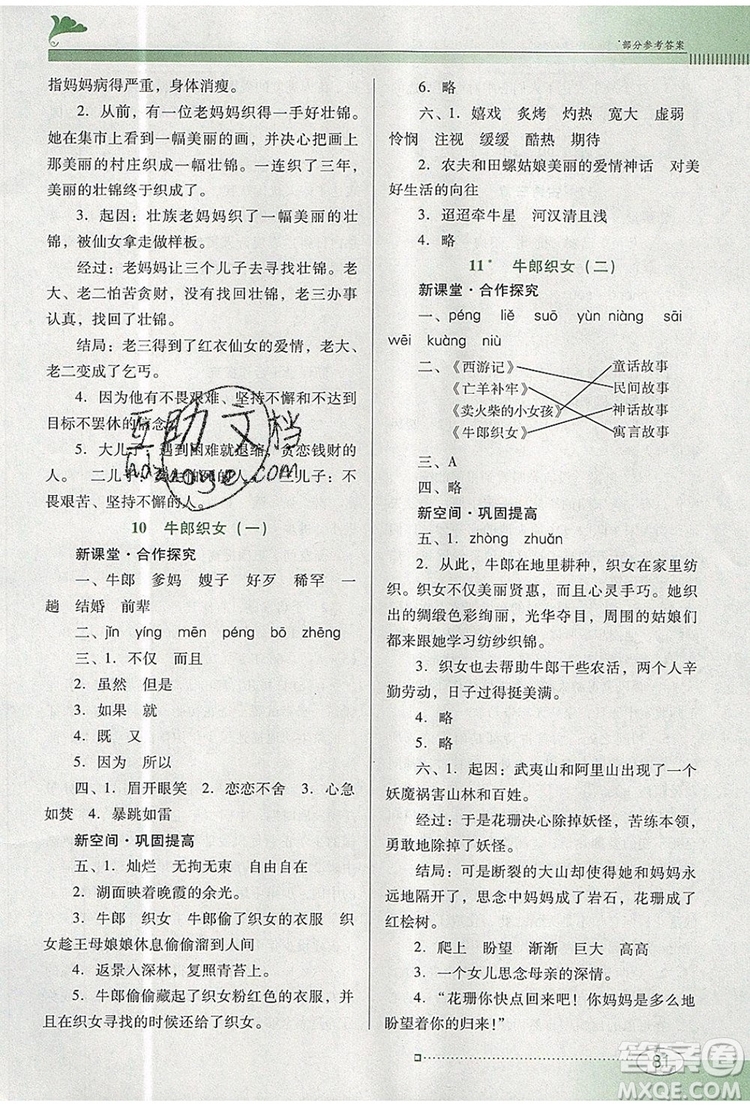 部分参考答案
指妈妈病得严重，身体消瘦。
2. 从前，有一位老妈妈织得一手好壮锦。
她在集市上看到一幅美丽的画，并决心要把
那美丽的村庄织成壮锦。一连织了三年，
美丽的壮锦终于织成了。
3. 起因：壮族老妈妈织了一幅美丽的壮
锦，被仙女拿走做样板。
经过：老妈妈让三个儿子去找壮锦。老
大、老二怕苦贪财，没有找回壮锦。老三办事
认真，找回了壮锦。
结局：老三得到了红衣仙女的爱情，老大、
老二变成了乞丐。
4. 因为他有不畏艰难、坚持不懈和不达到
目标不罢休的信念。
5. 大儿子：遇到困难就退缩、贪恋钱财的
人。 二儿子：
畏艰苦、坚持不懈的人。
10 牛郎织女（一）
新课堂·合作探究
一、牛郎 爹妈 嫂子 好歹 稀罕 一
趟 结婚 前辈
二、jǐn yíng mēn péng bō zhēng
三、1. 不仅 而且
2. 虽然 但是
3. 如果 就
4. 既 又
5. 因为 所以
四、1. 眉开眼笑 2. 恋恋不舍 3. 心急
如焚 4. 暴跳如雷
新空间·巩固提高
五、1. 灿烂 无拘无束 自由自在
2. 湖面映着晚霞的余光。
3. 牛郎 织女 牛郎偷了织女的衣服 织
女趁王母娘娘休息偷偷溜到人间
4. 返景入深林，复照青苔上。
5. 牛郎偷偷藏起了织女粉红色的衣服，并
且在织女寻找的时候还给了织女。
6. 略
六、1. 嬉戏 炙烤 灼热 宽大 虚弱
怜悯 注视 缓缓 酷热 期待
2. 农夫和田螺姑娘美丽的爱情神话 对美
好生活的向往
3. 迢迢牵牛星 河汉清且浅
4. 略
11* 牛郎织女（二）
新课堂·合作探究
一、péng liě suō yùn niàng sāi
wēi kuāng niù
二、《西游记》 童话故事
《亡羊补牢》 民间故事
《卖火柴的小女孩》 神话故事
《牛郎织女》 寓言故事
三、A
四、略
新空间·巩固提高
五、1. zhòng zhuǎn
2. 从此，牛郎在地里耕种，织女在家里纺
织。织女不仅美丽贤惠，而且心灵手巧。她织
出的绸缎色彩绚丽，光华夺目，周围的姑娘们
都来跟她学习纺纱织锦。
3. 织女也去帮助牛郎干些农活，两个人辛
勤劳动，日子过得挺美满。
4. 略
5. 略
六、1. 起因：武夷山和阿里山出现了一个
妖魔祸害山林和百姓。
经过：于是花珊决心除掉妖怪，苦练本领，
勇敢地除掉了妖怪。
结局：可是断裂的大山却使得她和妈妈永
远地隔开了，思念中妈妈成了岩石，花珊成了
红桧树。
2. 爬上 盼望 渐渐 巨大 高高
3. 一个女儿思念母亲的深情。
4. “花珊你快点回来吧！你妈妈多么地
盼望着你的归来！”
81
互助文档
答案圈
MXQE.COM